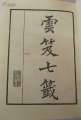 雲笈七籤